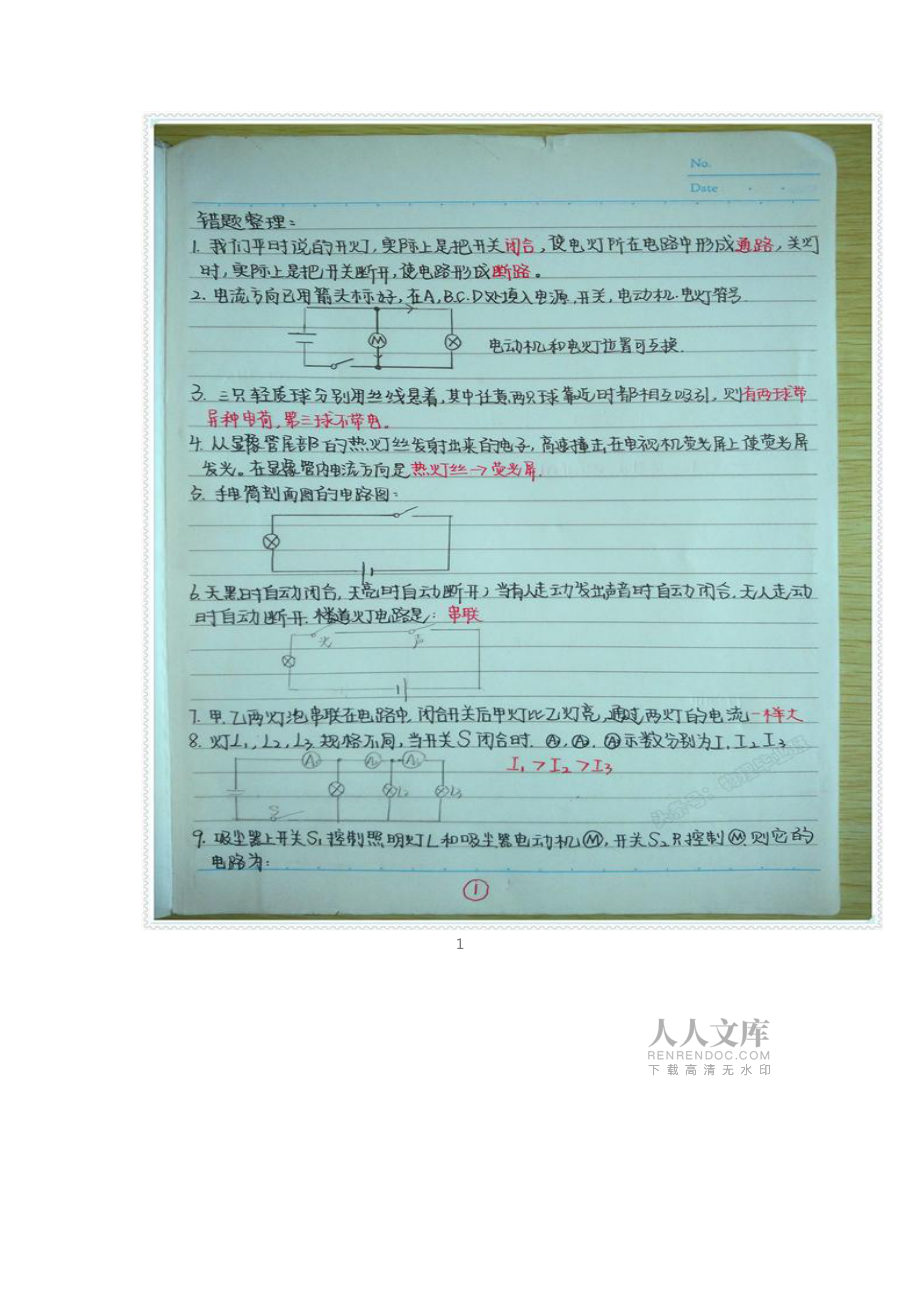 No.
Date
错题整理：
1. 我们平时说的开灯，实际上是把开关闭合，使电灯所在电路中形成通路，关灯
时，实际上是把开关断开，使电路形成断路。
2. 电流方向已用箭头标好，在A,B,C,D处填入电源,开关，电动机.电灯符号
M
电动机和电灯位置可互换.
3. 三只轻质球分别用丝线悬着，其中任意两只球靠近时都相互吸引，则有两球带
异种电荷，第三球不带电。
4. 从显像管尾部的热灯丝发射出来的电子，高速撞击在电视机荧光屏上使荧光屏
发光。在显像管内电流方向是热灯丝→荧光屏.
5. 手电筒剖面图的电路图：
6. 天黑时自动闭合，天亮时自动断开；当有人走动发出声音时自动闭合，无人走动
时自动断开.楼道灯电路是：串联
光 声
7. 甲.乙两灯泡串联在电路中.闭合开关后甲灯比乙灯亮，通过两灯的电流一样大
8. 灯L₁，L₂，L₃ 规格不同，当开关S闭合时. A₁，A₂，A₃示数分别为I₁ I₂ I₃
I₁ > I₂ > I₃
L₂ L₃
S
9. 吸尘器上开关S₁控制照明灯L和吸尘器电动机M，开关S₂只控制M则它的
电路为：
1
1
人人文库
RENRENDOC.COM
下载高清无水印